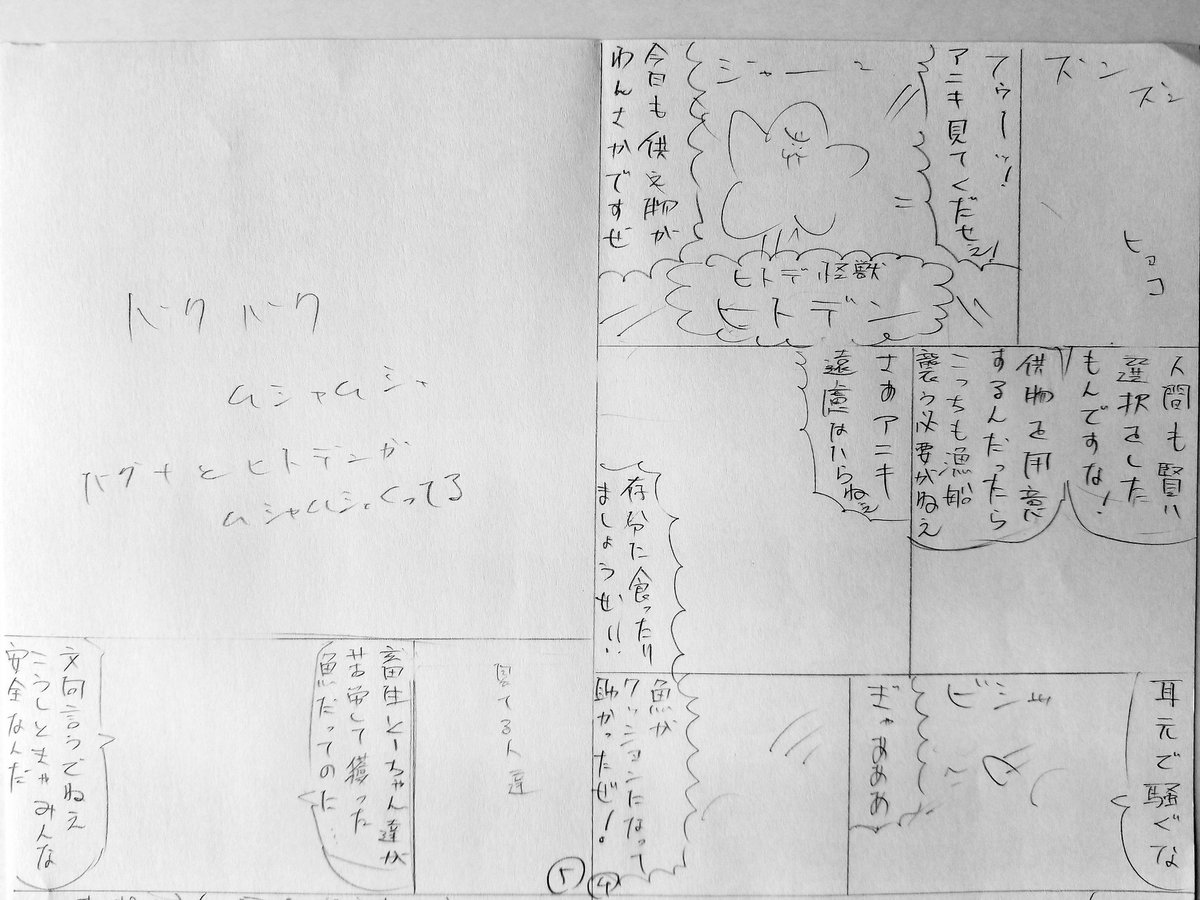 ズン
ズン
ヒョコ
てぅーッ!
アニキ見てくだせえ!
ジャーン
今日も供え物が
わんさかですぜ
ヒトデ怪獣
ヒトデン
人間も賢い
選択をした
もんですな!
供物を用意
するんだったら
こっちも漁船
襲う必要がねえ
さあアニキ
遠慮はいらねえ
存分に食ったり
ましょうぜ!!
耳元で騒ぐな
ビシッ
ぎゃあああ
魚が
クッションになって
助かったぜ!
4
バク バク
ムシャムシャ
バグナとヒトデンが
ムシャムシャくってる
見てる人達
畜生とーちゃん達が
苦労して獲った
魚だってのに…
文句言うでねえ
こうしときゃみんな
安全なんだ
5